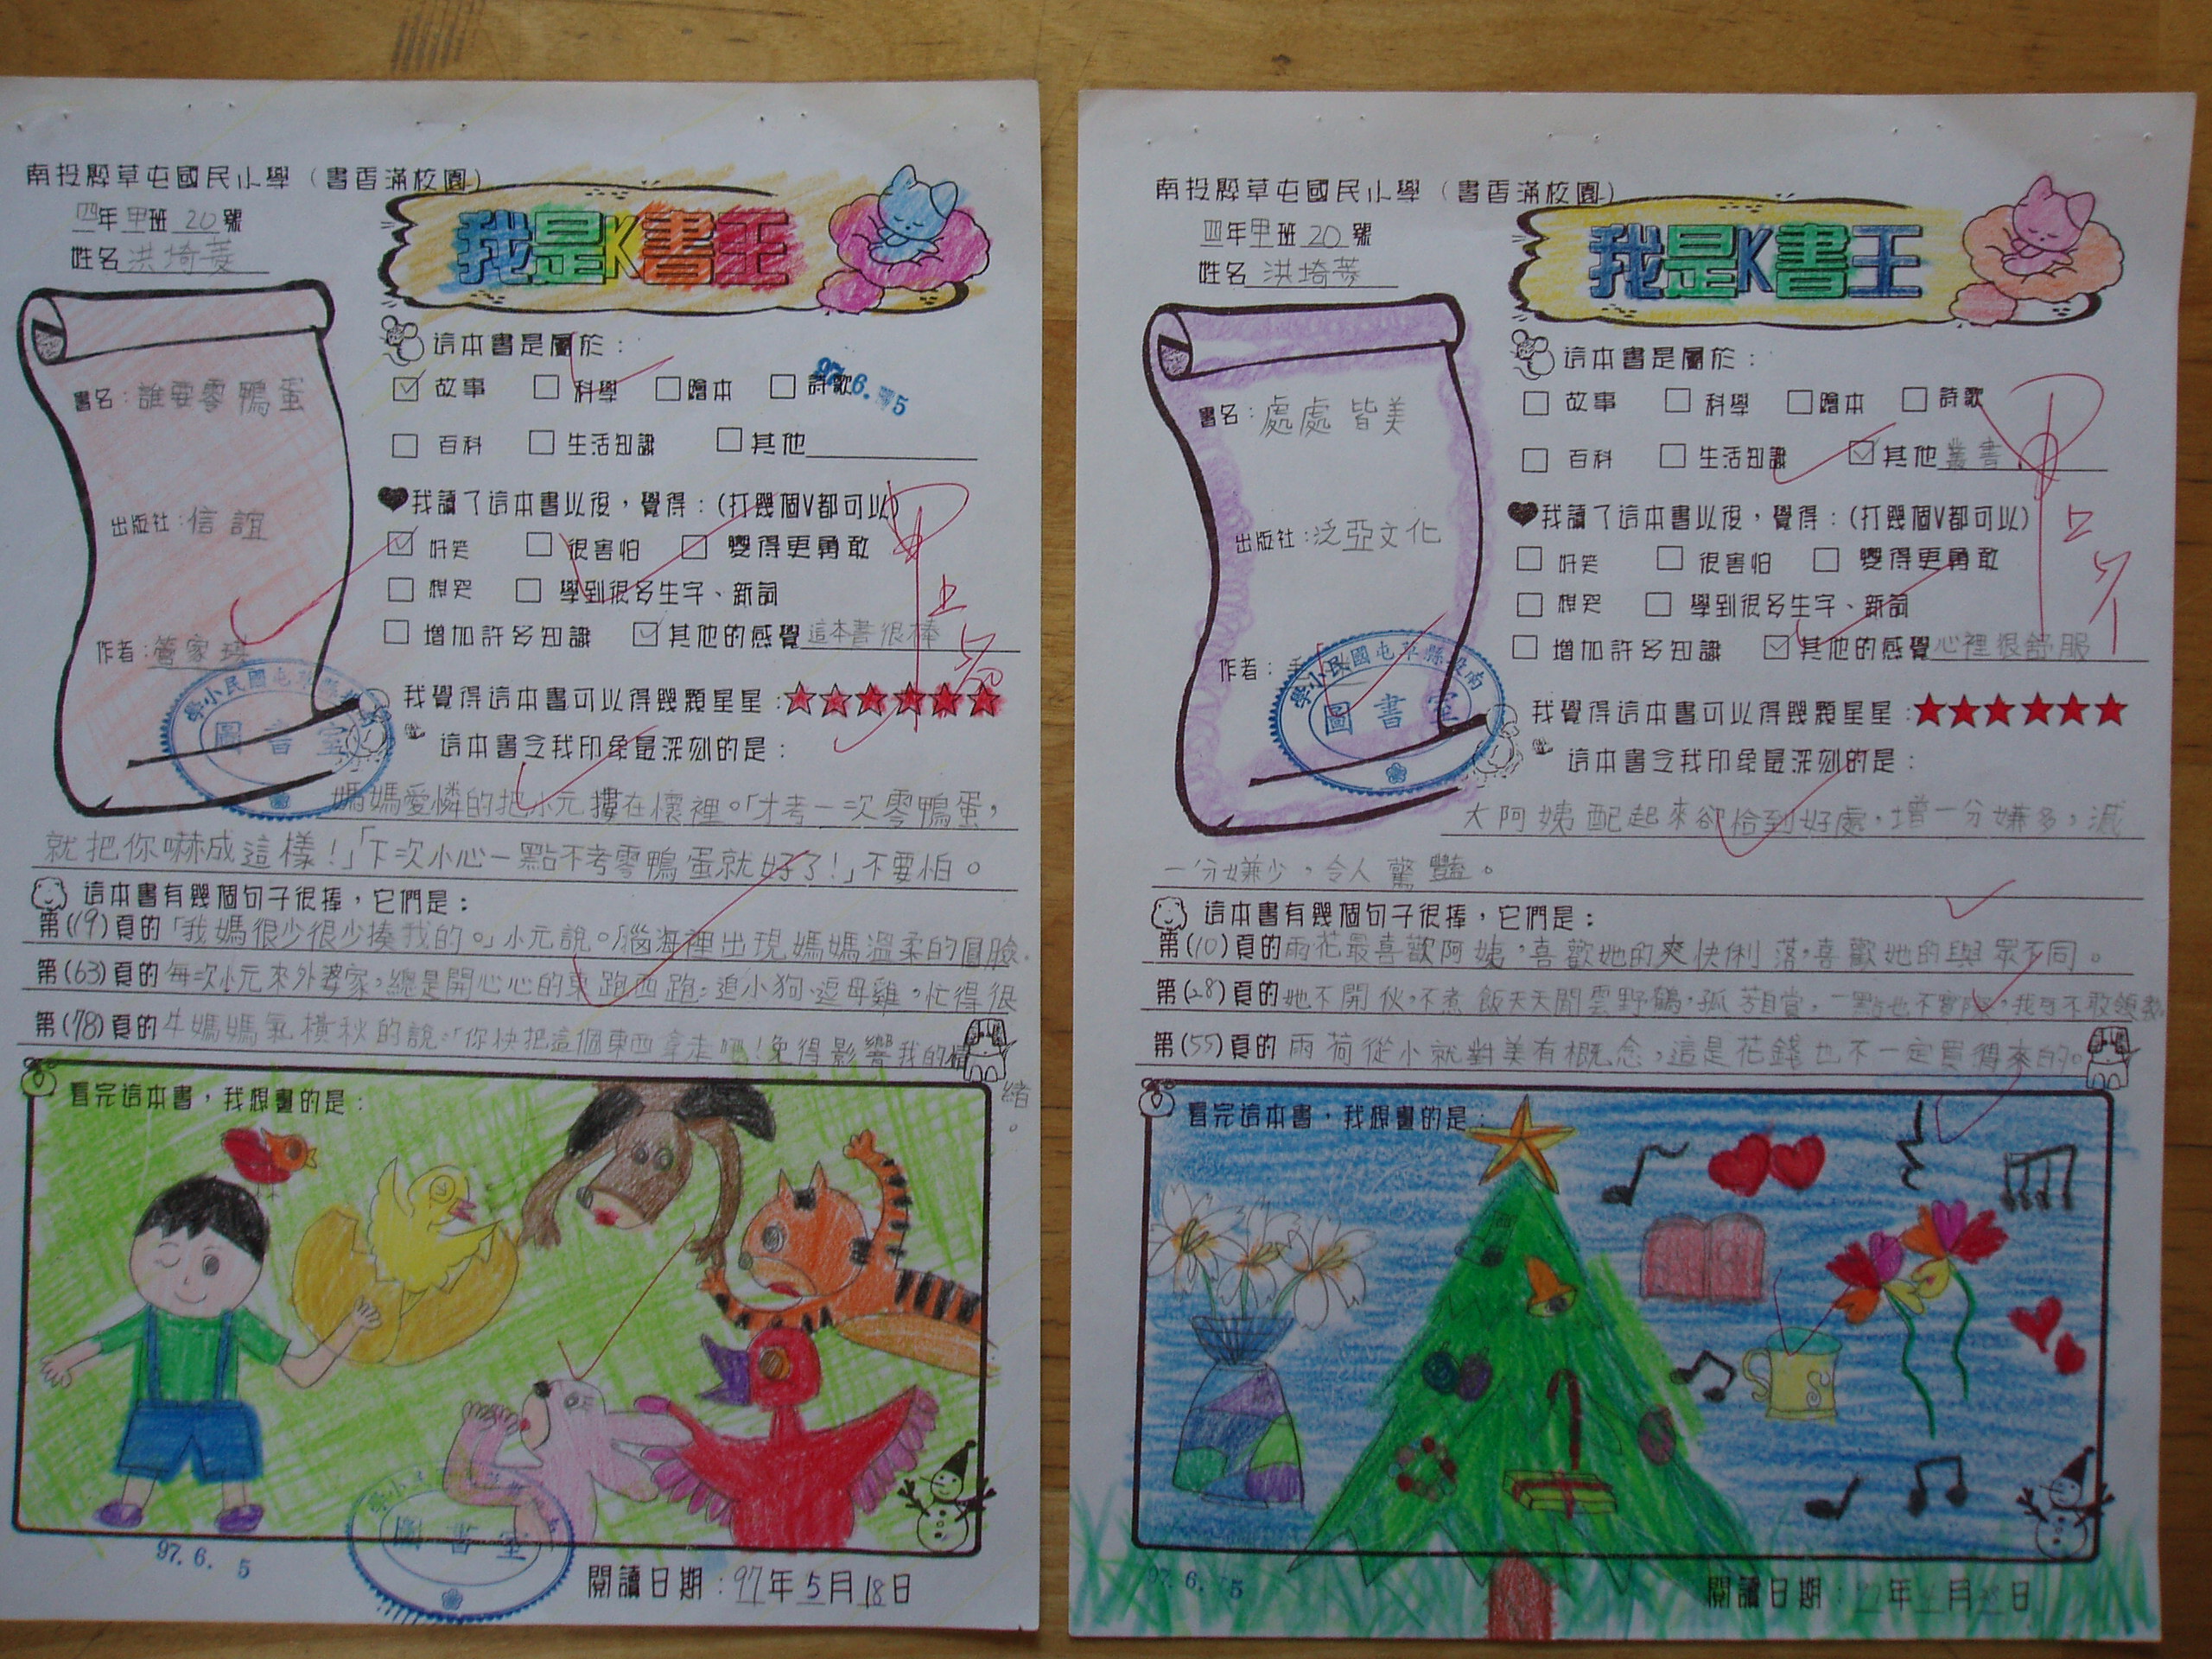 南投縣草屯國民小學（書香滿校園）
四年甲班 20 號
姓名 洪埼菱
我是K書王
書名：誰要零鴨蛋
出版社：信誼
作者：管家琪
這本書是屬於：
97.6.5
故事 科學 繪本 詩歌
百科 生活知識 其他
我讀了這本書以後，覺得：(打幾個V都可以)
好笑 很害怕 變得更勇敢
想哭 學到很多生字、新詞
增加許多知識 其他的感覺 這本書很棒
甲上
我覺得這本書可以得幾顆星星：★★★★★★
這本書令我印象最深刻的是：
媽媽愛憐的把小元摟在懷裡。「才考一次零鴨蛋，
就把你嚇成這樣！」「下次小心一點不考零鴨蛋就好了！」不要怕。
這本書有幾個句子很棒，它們是：
第(19)頁的「我媽很少很少揍我的。」小元說。腦海裡出現媽媽溫柔的圓臉。
第(63)頁的每次小元來外婆家，總是開心心的東跑西跑。追小狗、逗母雞，忙得很
第(78)頁的牛媽媽氣橫秋的說：「你快把這個東西拿走吧！免得影響我的情
緒。
看完這本書，我想畫的是：
圖書室
97.6.5
閱讀日期：97年5月18日
南投縣草屯國民小學（書香滿校園）
四年甲班 20 號
姓名 洪埼菱
我是K書王
書名：處處皆美
出版社：泛亞文化
作者：
南投縣草屯國民小學
圖書室
這本書是屬於：
故事 科學 繪本 詩歌
百科 生活知識 其他 叢書
我讀了這本書以後，覺得：(打幾個V都可以)
好笑 很害怕 變得更勇敢
想哭 學到很多生字、新詞
增加許多知識 其他的感覺 心裡很舒服
甲上
我覺得這本書可以得幾顆星星：★★★★★★
這本書令我印象最深刻的是：
大阿姨配起來卻恰到好處，增一分嫌多，減
一分嫌少，令人驚豔。
這本書有幾個句子很棒，它們是：
第(10)頁的雨花最喜歡阿姨，喜歡她的爽快俐落，喜歡她的與眾不同。
第(28)頁的她不開伙，不煮飯天天閒雲野鶴，孤芳自賞，一點也不實際，我可不敢領教
第(55)頁的雨荷從小就對美有概念，這是花錢也不一定買得來的。
看完這本書，我想畫的是：
97.6.5
閱讀日期：年月日